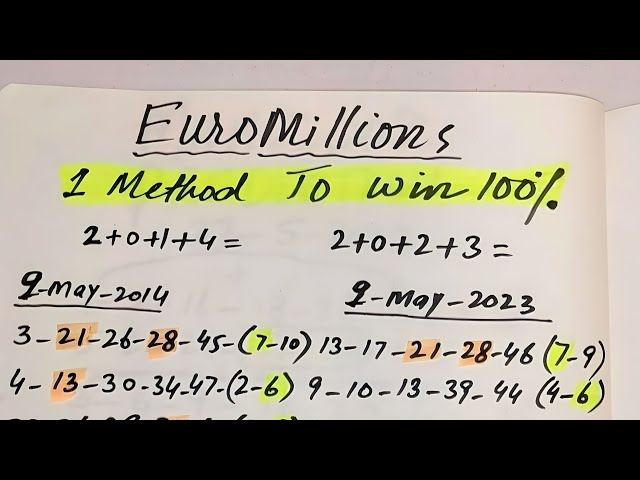 EuroMillions
1 Method To Win 100%
2+0+1+4= 2+0+2+3=
9-May-2014 9-May-2023
3-21-26-28-45-(7-10) 13-17-21-28-46(7-9)
4-13-30-34-47-(2-6) 9-10-13-39-44 (4-6)